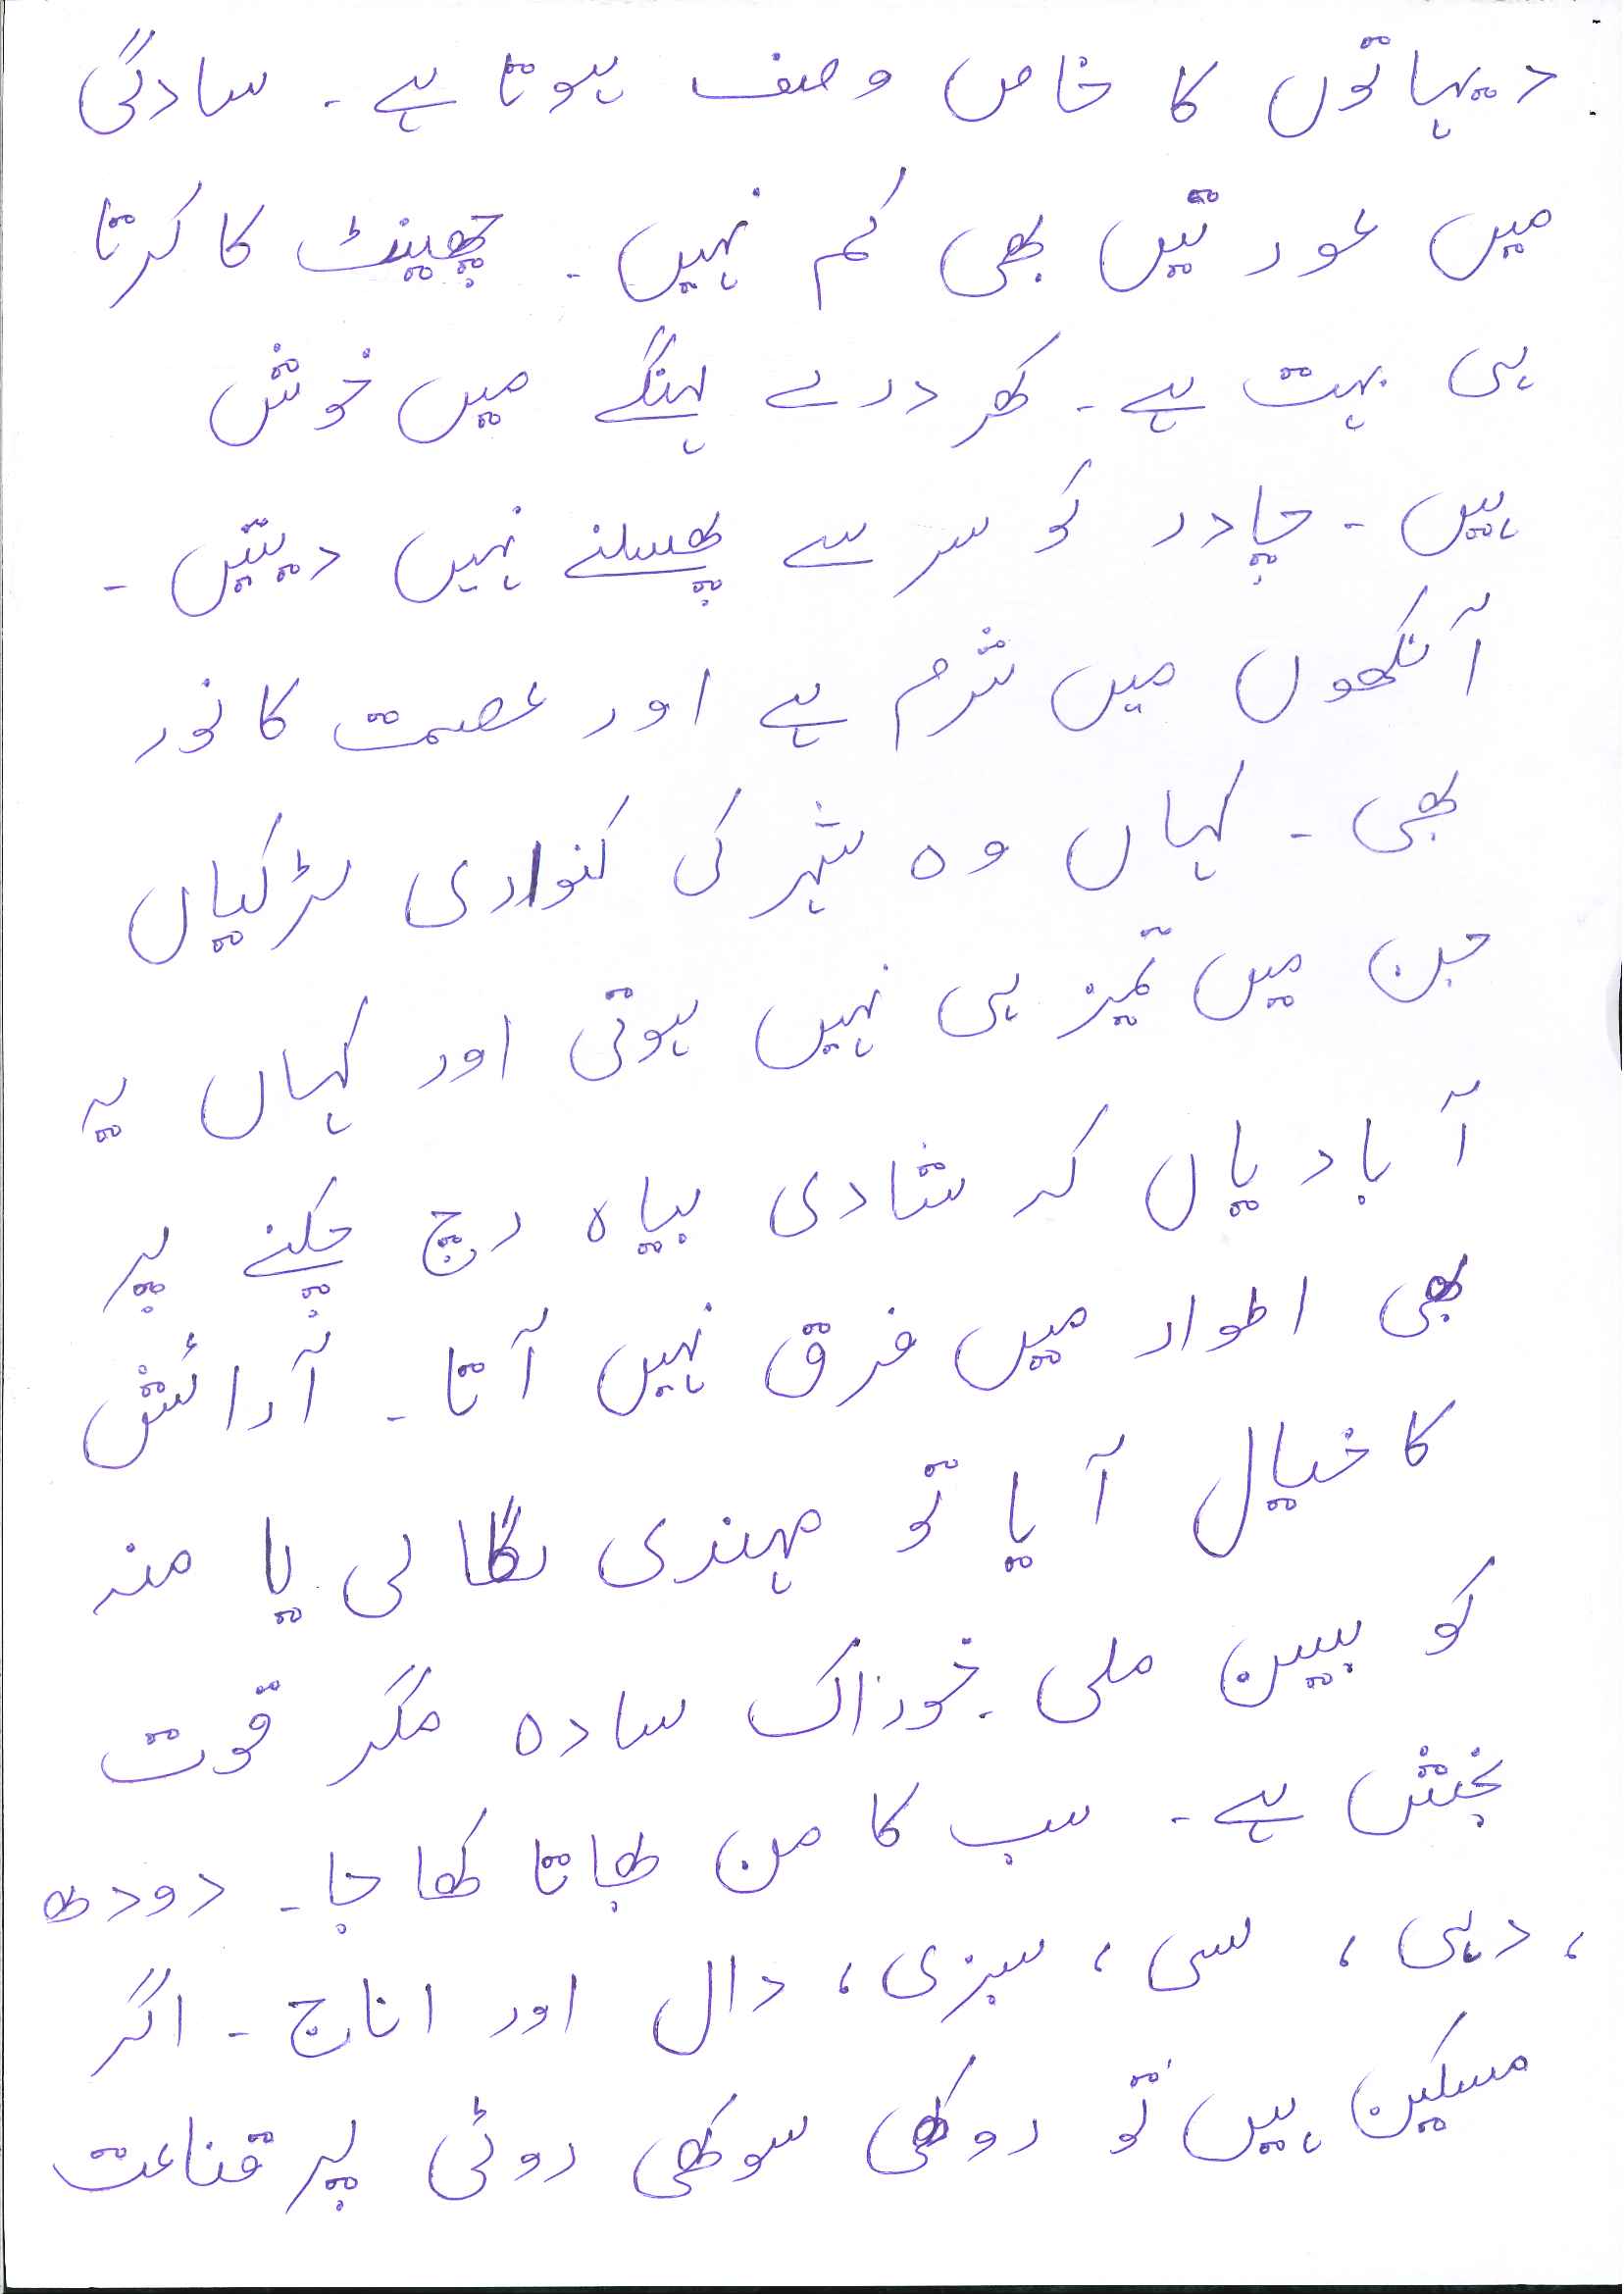 دیہاتوں کا خاص وصف ہوتا ہے۔ سادگی
میں عورتیں بھی کم نہیں۔ چھینٹ کا کرتا
ہی بہت ہے۔ کھردرے لہنگے میں خوش
ہیں۔ چادر کو سر سے پھسلنے نہیں دیتیں۔
آنکھوں میں شرم ہے اور عصمت کا نور
بھی۔ کہاں وہ شہر کی کنواری لڑکیاں
جن میں تمیز ہی نہیں ہوتی اور کہاں یہ
آبادیاں کہ شادی بیاہ رچ چکنے پر
بھی اطوار میں فرق نہیں آتا۔ آرائش
کا خیال آیا تو مہندی لگا لی یا منہ
کو بیسن ملی۔ خوراک سادہ مگر قوت
بخش ہے۔ سب کا من بھاتا کھاجا۔ دودھ
، دہی، لسی، سبزی، دال اور اناج۔ اگر
مسکین ہیں تو روکھی سوکھی روٹی پر قناعت